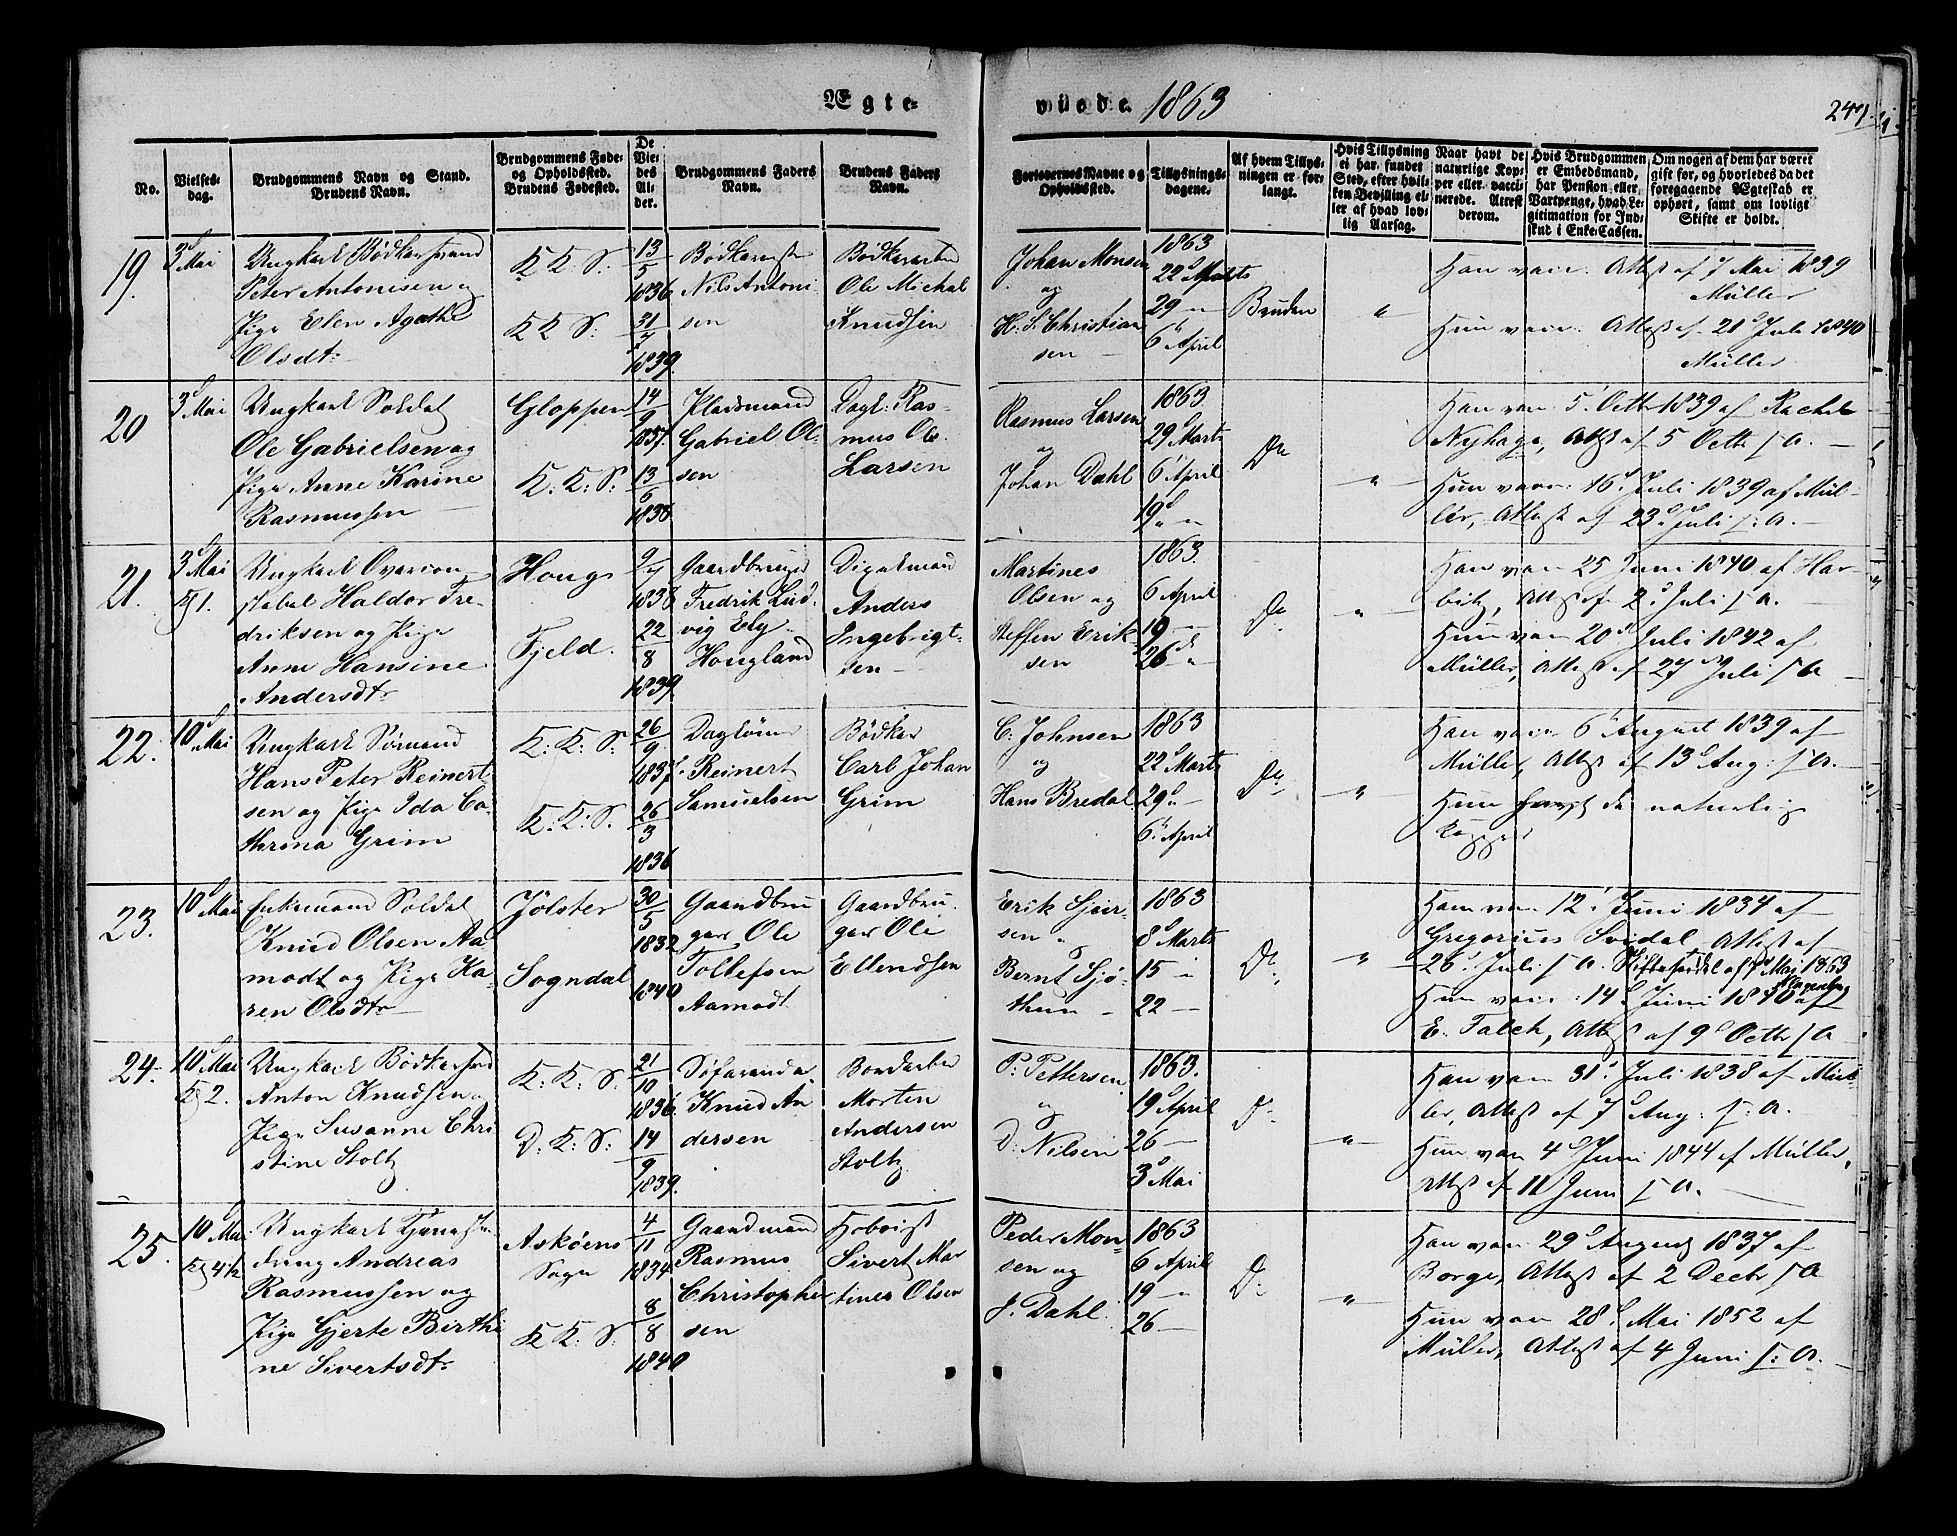 Ægte-
viede. 1863
247
No.
Vielses-
dag.
Brudgommens Navn og Stand.
Brudens Navn.
Brudgommens Føde-
og Opholdssted.
Brudens Fødested.
De
Vie-
des
Al-
der.
Brudgommens Faders
Navn.
Brudens Faders
Navn.
Forlovernes Navne og
Opholdssted.
Tillysnings-
dagene.
Af hvem Tillys-
ningen er for-
langt.
Hvis Tillysning
ei har fundet
Sted, efter hvil-
ken Bevilling el-
ler af hvad lov-
lig Aarsag.
Naar havt de
naturlige Kop-
per eller vacci-
nerede. Attest
derom.
Hvis Brudgommen
er Embedsmand,
har Pension eller
Vartpenge, hvad Le-
gitimation for Ind-
skud i Enke-Cassen.
Om nogen af dem har været
gift før, og hvorledes da det
foregaaende Ægteskab er
ophørt, samt om lovligt
Skifte er holdt.
19.
3 Mai
Ungkarl Bødkersvend
Peter Antonisen og
Pige Elen Agathe
Olsdtr
K K S:
K K S:
13
5
1836
31
7
1839
Nils Antoni-
sen
Ole Michal
Knudsen
Johan Monsen
og
H. S. Christian
sen
1863
22 Marts
29 "
6 April
Bruden
"
Han vacc: Attest af 7 Mai 1839
Müller
Hun vacc: Attest af 21 Juli 1840
Müller
20
3 Mai
Ungkarl Soldat
Ole Gabrielsen og
Pige Anne Karine
Rasmussen
Gloppen
K. K. S.
14
9
1837.
13
6
1838
Pladsmand
Gabriel Ol-
sen
Ras-
mus Ole
Larsen
Rasmus Larsen
og
Johan Dahl
1863.
29 Marts
6 April
19 "
Do
"
Han vacc. 5 Octb 1839 af Rachel
Nyhage, Attest af 5 Octb s. A.
Hun vacc: 16 Juli 1839 af Mül-
ler, Attest af 23 Juli s. A.
21.
3 Mai
Kl 1.
Ungkarl
Haldor Fre-
driksen og Pige
Anne Hansine
Andersdtr
Houg
Fjeld.
9
7
1838
22
8
1839
Gaardbruger
Fredrik Lud-
vig
Hougland
Anders
Ingebrigt-
sen
Martines
Olsen og
Steffen Erik-
sen
1863.
6 April
19 "
26 "
Do
"
Han vacc 25 Juni 1840 af Har-
bitz, Attest af 2 Juli s. A.
Hun vacc 20 Juli 1842 af
Müller, Attest af 27 Juli s A
22.
10 Mai
Ungkarl Sømand
Hans Peter Reinert-
sen og Pige Ida Ca-
thrina Grim
K: K: S.
K. K: S.
26
9
1837
26
3
1836
Dagløner
Reinert
Samuelsen
Bødker
Carl Johan
Grim
C. Johnsen
og
Hans Bredal
1863
22 Marts
29 "
6 April
Do
"
Han vacc 6 August 1839 af
Müller, Attest af 13 Aug: s A.
Hun havt de naturlig
Kopper
23.
10 Mai
Enkemand Soldat
Knud Olsen Aa-
modt og Pige Ka-
ren Olsdtr
Jölster
Sogndal
30
5
1832
1840
Gaardbru
ger Ole
Tollefsen
Aamodt
Gaardbru-
ger Ole
Ellendsen
Erik Sjur-
sen og
Bernt Sjö-
thun
1863
8 Marts
15 "
22 -
Do
"
Han vacc 12 Juni 1834 af
Gregorius Svidal, Attest af
26 Juli s A. Skifteattest af 7 Mai 1863
Hun vacc: 14 Juni 1840 af
E. Falch, Attest af 9 Octb s A
24.
10 Mai
Kl 2.
Ungkarl Bødkersvend
Anton Knudsen og
Pige Susanne Chri
stine Stoltz
K: K: S.
D: K: S.
21
10
1836
14
9
1839.
Knud An
dersen
Morten
Andersen
Stoltz
P. Pettersen
og
D. Nilsen
1863.
19 April
26 -
3 Mai
Do
"
Han vacc 31 Juli 1838 af Mül-
ler, Attest af 7 Aug: s. A.
Hun vacc 4 Juni 1844 af Müller,
Attest af 11 Juni s A.
25.
10 Mai
Kl 4½
Ungkarl
Andreas
Rasmussen og
Pige Gjerte Birthi
ne Sivertsdtr
Askøens
Sogn
K K: S:
4
11
1834
8
8
1840
Gaardmand
Rasmus
Christopher
sen
Sivert Mar
tines Olsen
Peder Mon-
sen og
J. Dahl
1863
6 April
19 "
26 -
Do
"
Han vacc 29 August 1837 af
Borge, Attest af 2 Decbr s A
Hun vacc 28 Mai 1852 af
Müller, Attest af 4 Juni s: A.